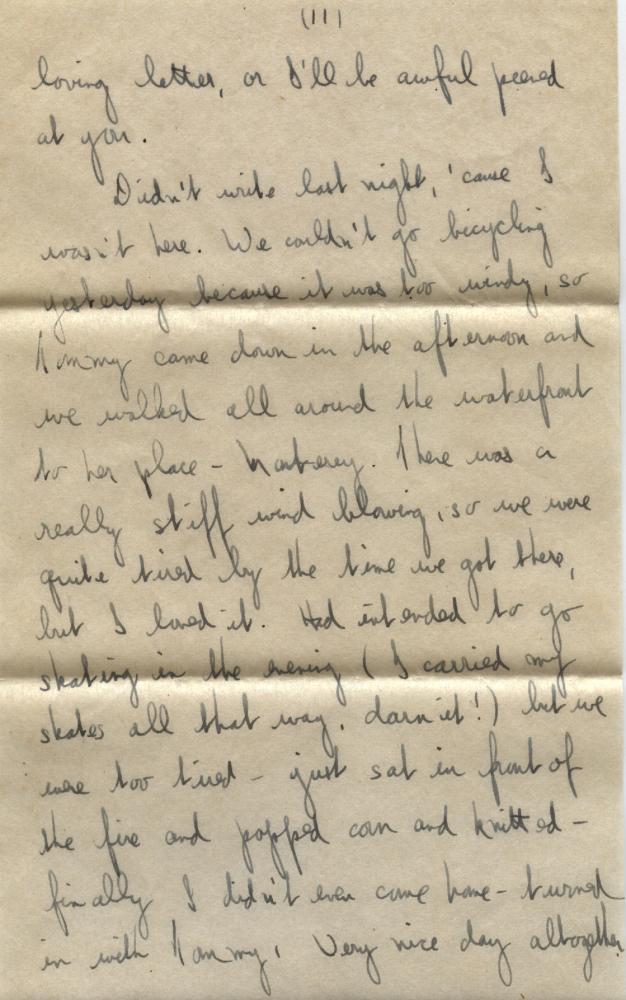 (11)
loving letter, or I'll be awful peeved
at you.
Didn't write last night, 'cause I
wasn't here. We couldn't go bicycling
yesterday because it was too windy, so
Tommy came down in the afternoon and
we walked all around the waterfront
to her place - Monterey. There was a
really stiff wind blowing, so we were
quite tired by the time we got there,
but I loved it. Had intended to go
skating in the evening (I carried my
skates all that way, darn it!) but we
were too tired - just sat in front of
the fire and popped corn and knitted -
finally I didn't even come home - turned
in with Tommy. Very nice day altogether